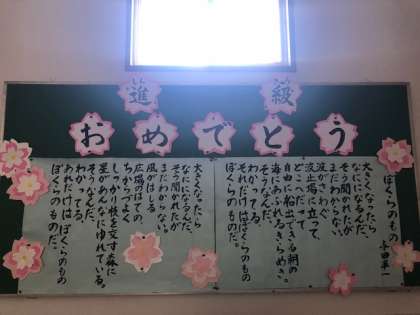 進級
しん
きゅう
おめでとう
ぼくらのもの
与田準一
大きくなったら
なんになるんだ。
そう聞かれたが
まだわからない。
波がさわぐ
波止場に立って、
どこへだって
自由に船出できる朝の
海にあふれるきらめき。
そうなんだ。
わかってる。
それだけはぼくらのもの
ぼくらのものだ。
大きくなったら
なんになるんだ。
そう聞かれたが
まだわからない。
風がはしる
広場のはての、
ちからづよく
しっかり枝を交す森に
星があんなにゆれている。
そうなんだ。
わかってる。
あれだけはぼくらのもの
ぼくらのものだ。